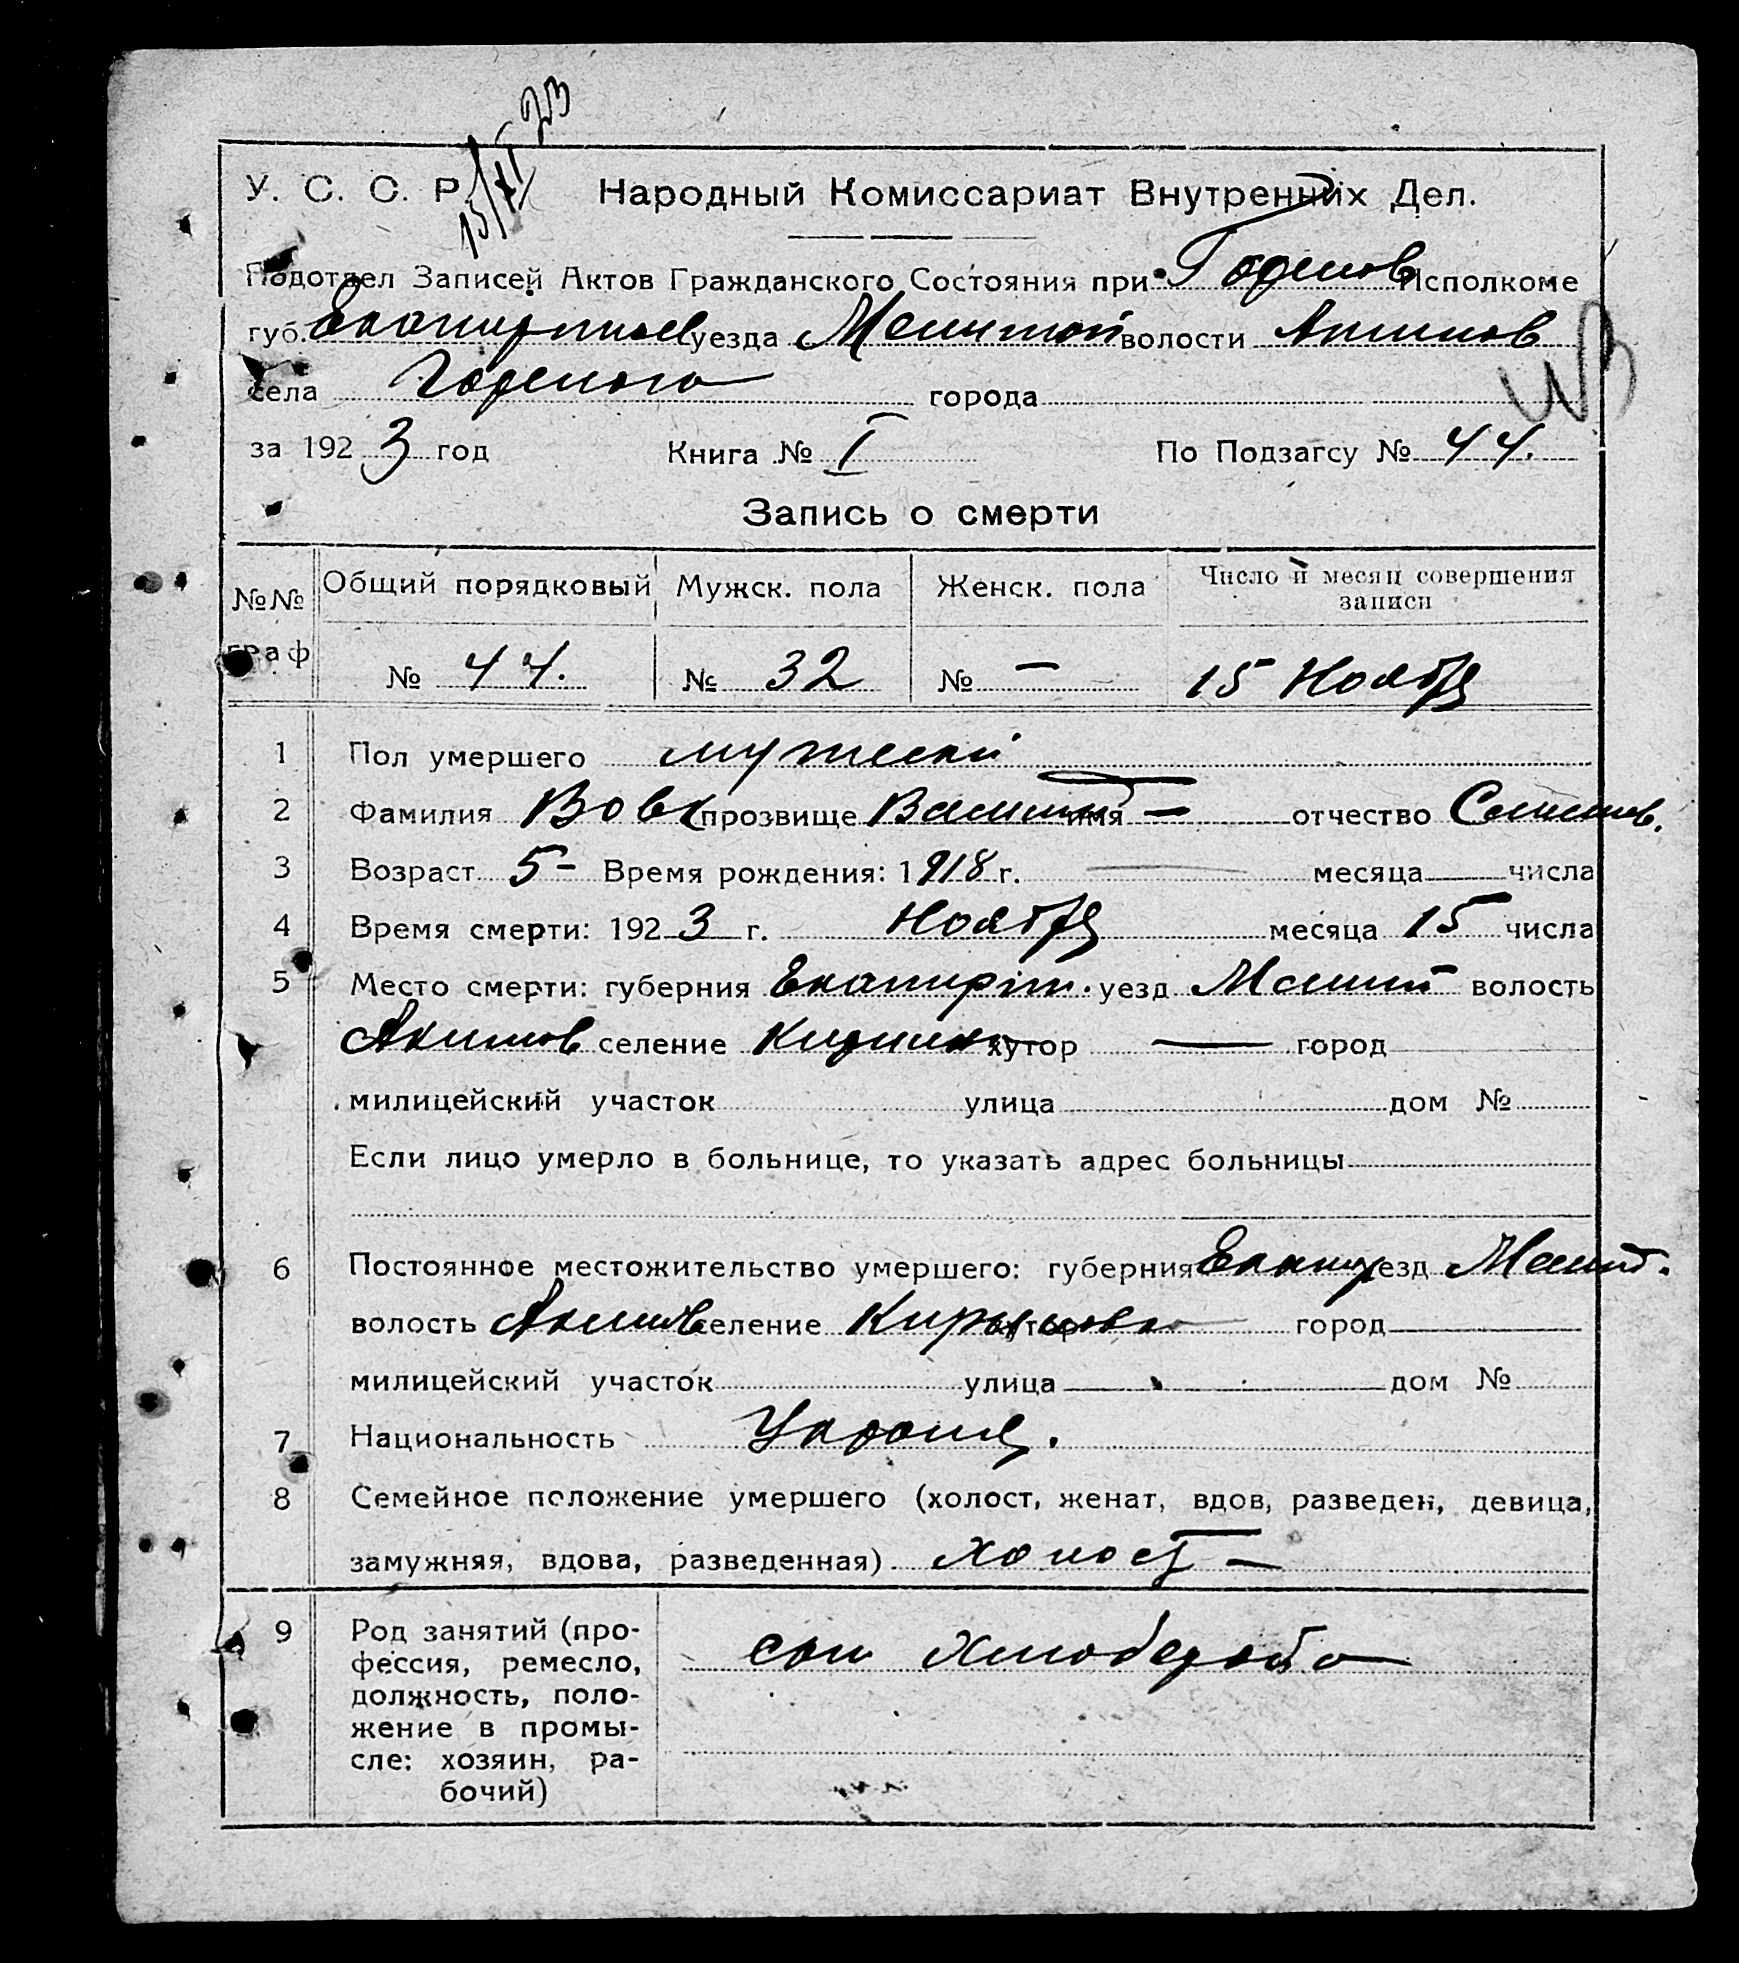 15/XI 23
У. С. С. Р. Народный Комиссариат Внутренних Дел.
Подотдел Записей Актов Гражданского Состояния при Исполкоме
губ. уезда Мелитоп волости Акимов
села города
за 1923 год Книга № I По Подзагсу № 44.
Запись о смерти
№№ граф Общий порядковый Мужск. пола Женск. пола Число и месяц совершения записи
№ 44. № 32 № — 15 Ноября
1 Пол умершего мужеский
2 Фамилия Вовк прозвище имя — отчество
3 Возраст 5 - Время рождения: 1918 г. — месяца числа
4 Время смерти: 1923 г. Ноября месяца 15 числа
5 Место смерти: губерния уезд волость
Акимов селение хутор — город
милицейский участок улица дом №
Если лицо умерло в больнице, то указать адрес больницы
6 Постоянное местожительство умершего: губерния уезд Мелит.
волость Акимов селение хутор город
милицейский участок улица дом №
7 Национальность
8 Семейное положение умершего (холост, женат, вдов, разведен, девица,
замужняя, вдова, разведенная) холост —
9 Род занятий (про-
фессия, ремесло,
должность, поло-
жение в промы-
сле: хозяин, ра-
бочий)
сын хлебороба